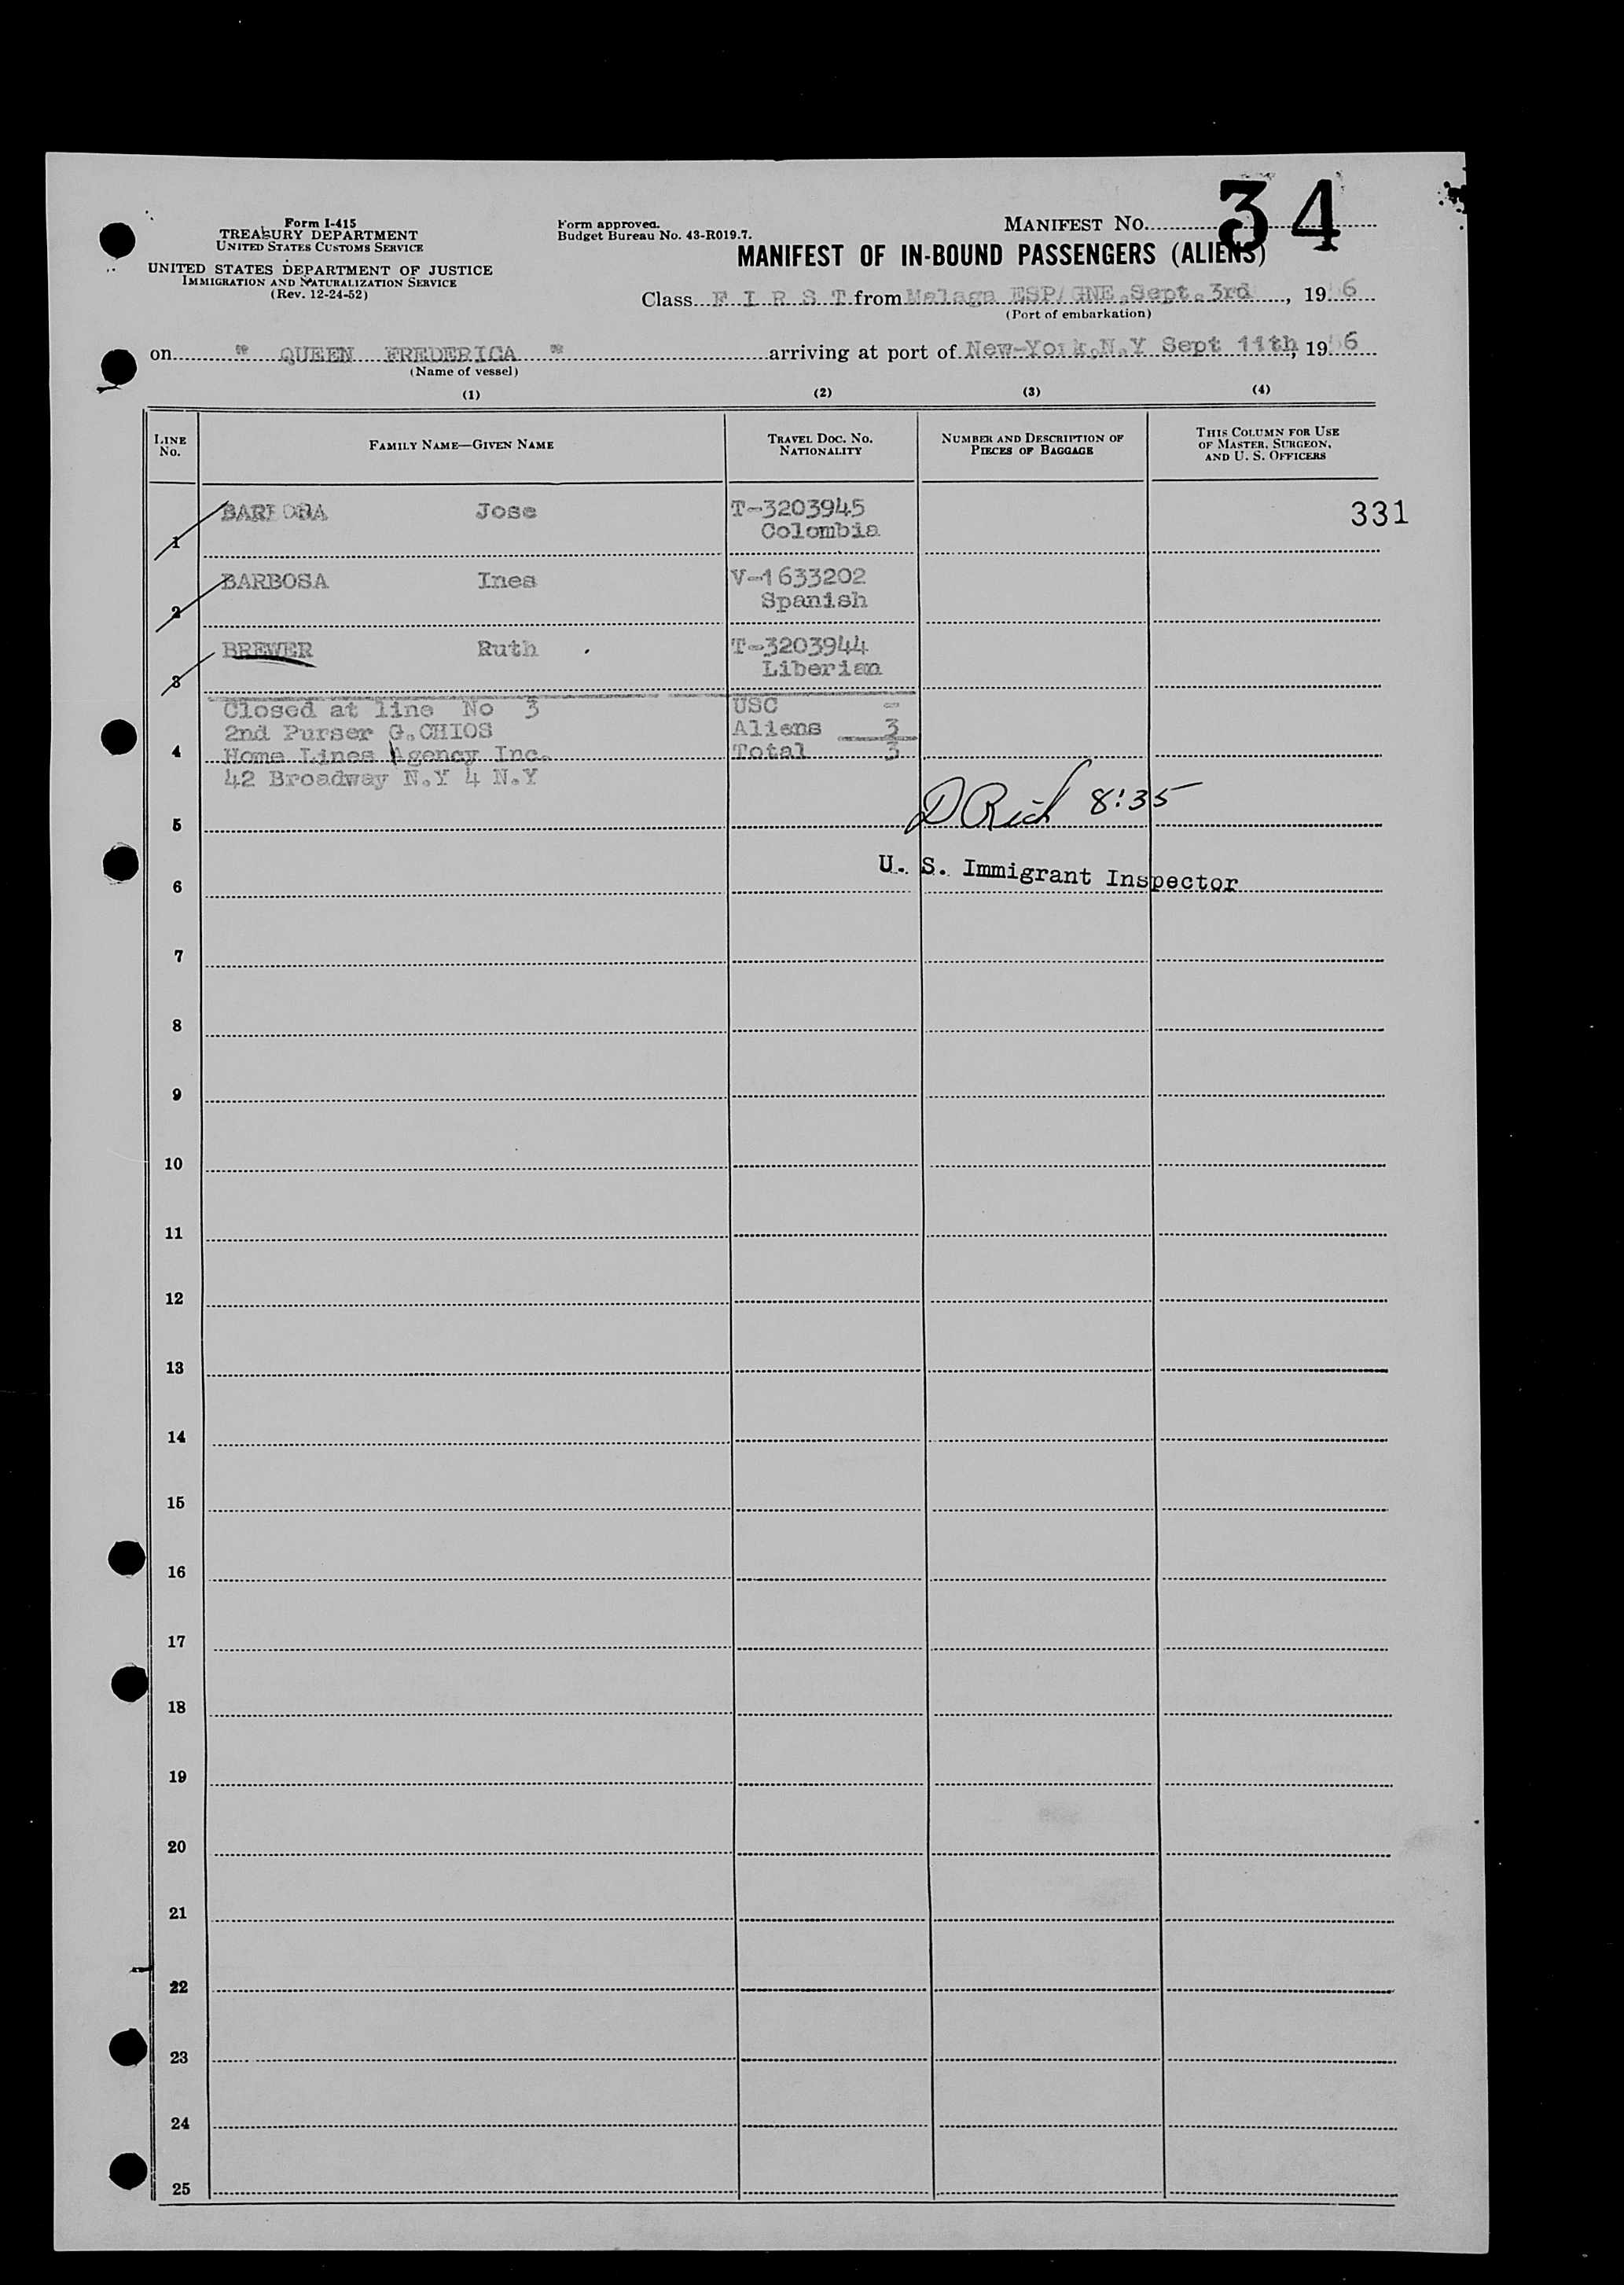 34
Form I-415
TREASURY DEPARTMENT
UNITED STATES CUSTOMS SERVICE
UNITED STATES DEPARTMENT OF JUSTICE
IMMIGRATION AND NATURALIZATION SERVICE
(Rev. 12-24-52)
Form approved.
Budget Bureau No. 43-R019.7.
MANIFEST No.
MANIFEST OF IN-BOUND PASSENGERS (ALIENS)
Class F I R S T from Malaga ESPAGNE, Sept. 3rd, 19 6
(Port of embarkation)
on " QUEEN FREDERICA " arriving at port of New-York, N.Y Sept 11th, 19 6
(Name of vessel)
(1) (2) (3) (4)
LINE No. FAMILY NAME—GIVEN NAME TRAVEL DOC. NO. NATIONALITY NUMBER AND DESCRIPTION OF PIECES OF BAGGAGE THIS COLUMN FOR USE OF MASTER, SURGEON, AND U. S. OFFICERS
1 Jose T-3203945 331
Colombia
2 BARBOSA Ines V-1633202
Spanish
3 BREWER Ruth T-3203944
Liberian
Closed at line No 3 USC -
2nd Purser G.CHIOS Aliens 3
4 Home Lines Agency Inc. Total 3
42 Broadway N.Y 4 N.Y
D Rich 8:35
5
U. S. Immigrant Inspector
6
7
8
9
10
11
12
13
14
15
16
17
18
19
20
21
22
23
24
25